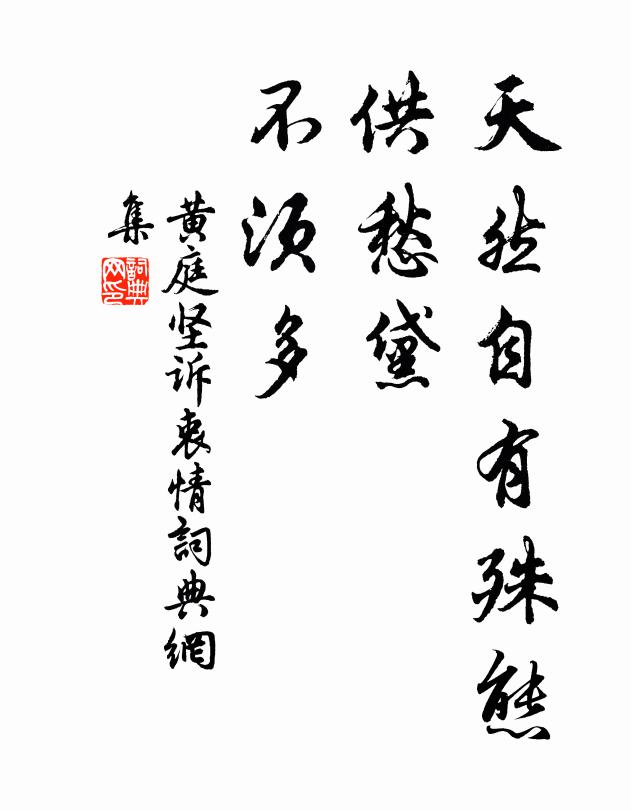 天然自有殊態
供愁黛
不須多
黄庭坚诉衷情詞典網
集
詞典
网印